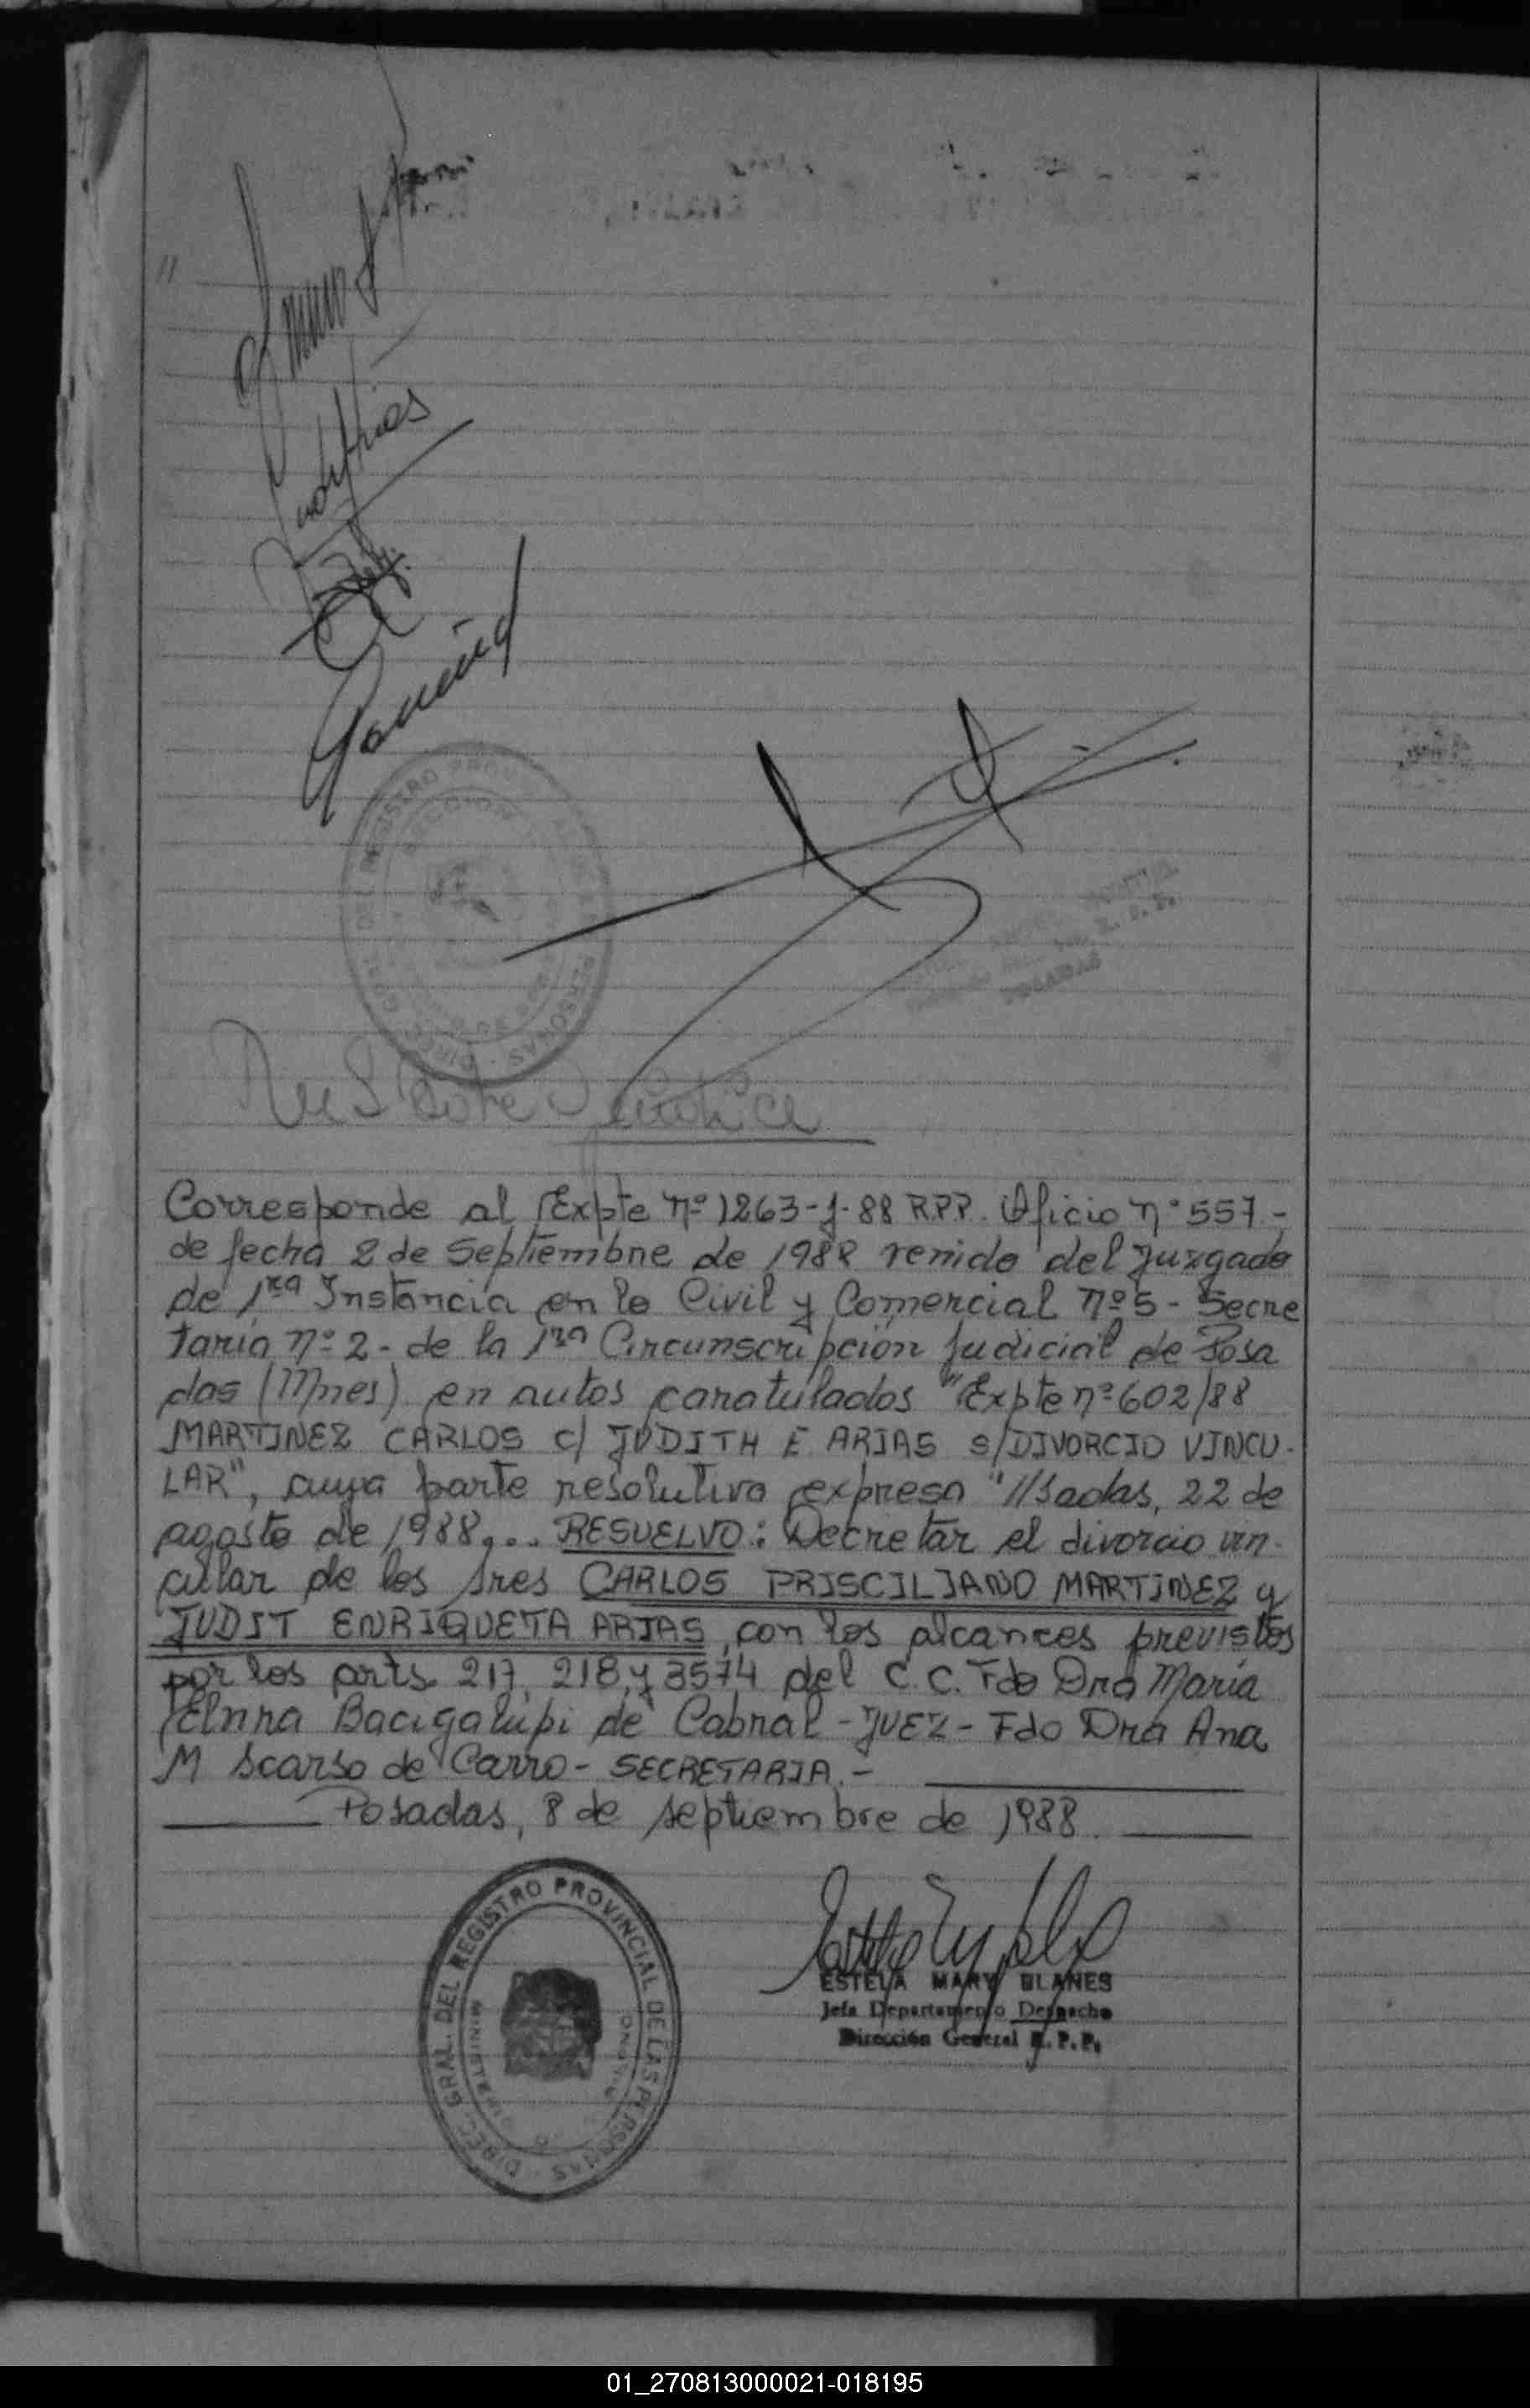 "
Judith Arias
Corresponde al Expte nº 1263-J-88 R.P.P. Oficio nº 557-
de fecha 2 de Septiembre de 1988 venido del Juzgado
de 1ra Instancia en lo Civil y Comercial nº 5 - Secre
taria nº 2 - de la 1ra Circunscripción Judicial de Posa
das (Mnes) en autos caratulados "Expte nº 602/88
MARTINEZ CARLOS c/ JUDITH E ARIAS s/DIVORCIO VINCU-
LAR", cuya parte resolutiva expresa "//sadas, 22 de
agosto de 1988... RESUELVO: Decretar el divorcio vin-
cular de los sres CARLOS PRISCILIANO MARTINEZ y
JUDIT ENRIQUETA ARIAS, con los alcances previstos
por los arts. 217, 218, y 3574 del C.C. Fdo Dra María
Elnra Bacigalupi de Cabral - JUEZ - Fdo Dra Ana
M Scarso de Carro - SECRETARIA.-
Posadas, 8 de septiembre de 1988.
DIREC. GRAL. DEL REGISTRO PROVINCIAL DE LAS PERSONAS
ESTELA MARY BLANES
Jefa Departamento Despacho
Dirección General R.P.P.
01_270813000021-018195